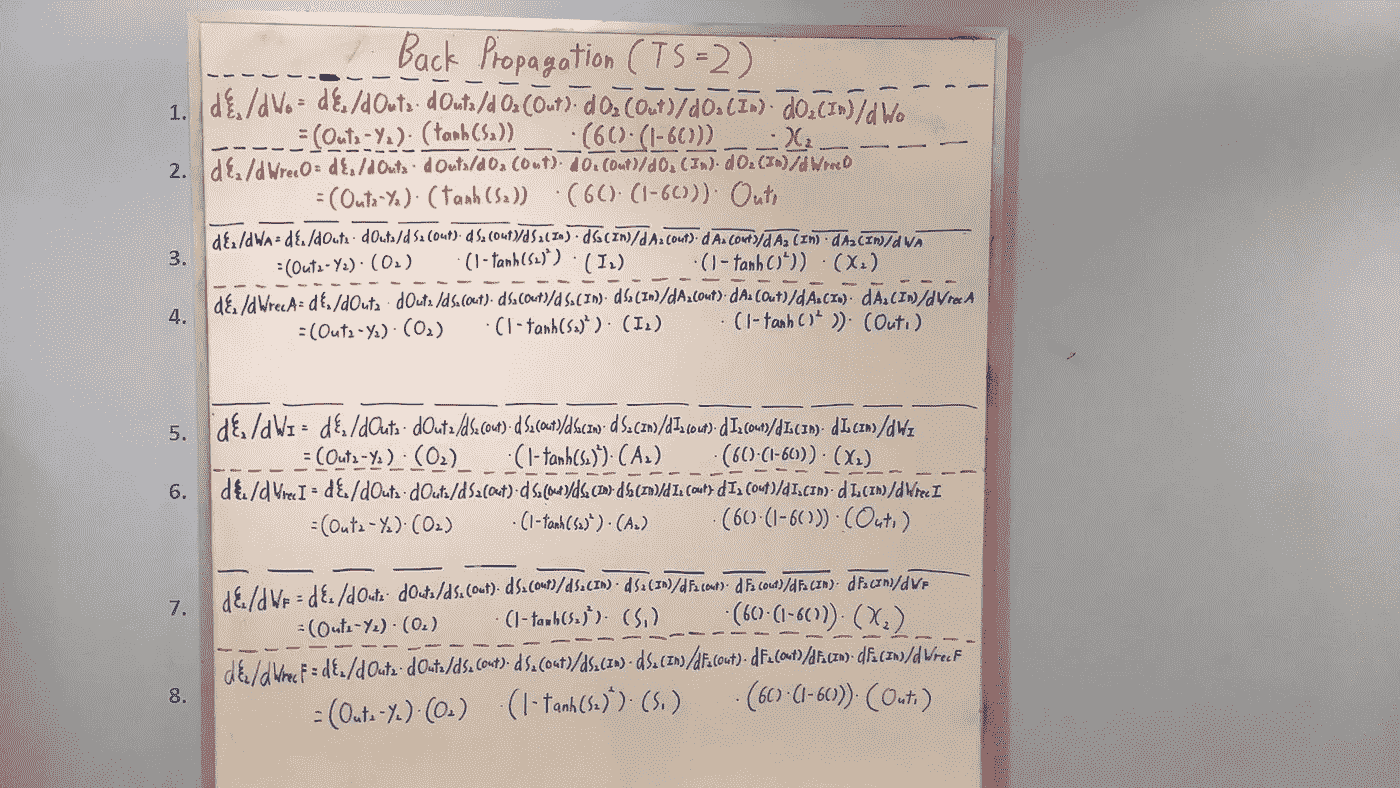 Back Propagation (TS=2)
1. dξ₂/dW₀ = dξ₂/dOut₂ · dOut₂/dO₂(Out) · dO₂(Out)/dO₂(In) · dO₂(In)/dW₀
=(Out₂-Y₂) · (tanh(S₂)) · (6() · (1-6())) · X₂
2. dξ₂/dWrecO = dξ₂/dOut₂ · dOut₂/dO₂(Out) · dO₂(Out)/dO₂(In) · dO₂(In)/dWrecO
=(Out₂-Y₂) · (tanh(S₂)) · (6() · (1-6())) · Out₁
3. dξ₂/dWA = dξ₂/dOut₂ · dOut₂/dS₂(out) · dS₂(out)/dS₂(In) · dS₂(In)/dA₂(out) · dA₂(out)/dA₂(In) · dA₂(In)/dWA
=(Out₂-Y₂) · (O₂) · (1-tanh(S₂)²) · (I₂) · (1-tanh()²)) · (X₂)
4. dξ₂/dWrecA = dξ₂/dOut₂ · dOut₂/dS₂(out) · dS₂(out)/dS₂(In) · dS₂(In)/dA₂(out) · dA₂(Out)/dA₂(In) · dA₂(In)/dWrecA
=(Out₂-Y₂) · (O₂) · (1-tanh(S₂)²) · (I₂) · (1-tanh()²)) · (Out₁)
5. dξ₂/dWI = dξ₂/dOut₂ · dOut₂/dS₂(out) · dS₂(out)/dS₂(In) · dS₂(In)/dI₂(out) · dI₂(out)/dI₂(In) · dI₂(In)/dWI
=(Out₂-Y₂) · (O₂) · (1-tanh(S₂)²) · (A₂) · (6() · (1-6())) · (X₂)
6. dξ₂/dWrecI = dξ₂/dOut₂ · dOut₂/dS₂(out) · dS₂(out)/dS₂(In) · dS₂(In)/dI₂(out) · dI₂(out)/dI₂(In) · dI₂(In)/dWrecI
=(Out₂-Y₂) · (O₂) · (1-tanh(S₂)²) · (A₂) · (6() · (1-6())) · (Out₁)
7. dξ₂/dWF = dξ₂/dOut₂ · dOut₂/dS₂(out) · dS₂(out)/dS₂(In) · dS₂(In)/dF₂(out) · dF₂(out)/dF₂(In) · dF₂(In)/dWF
=(Out₂-Y₂) · (O₂) · (1-tanh(S₂)²) · (S₁) · (6() · (1-6())) · (X₂)
8. dξ₂/dWrecF = dξ₂/dOut₂ · dOut₂/dS₂(out) · dS₂(out)/dS₂(In) · dS₂(In)/dF₂(out) · dF₂(out)/dF₂(In) · dF₂(In)/dWrecF
=(Out₂-Y₂) · (O₂) · (1-tanh(S₂)²) · (S₁) · (6() · (1-6())) · (Out₁)